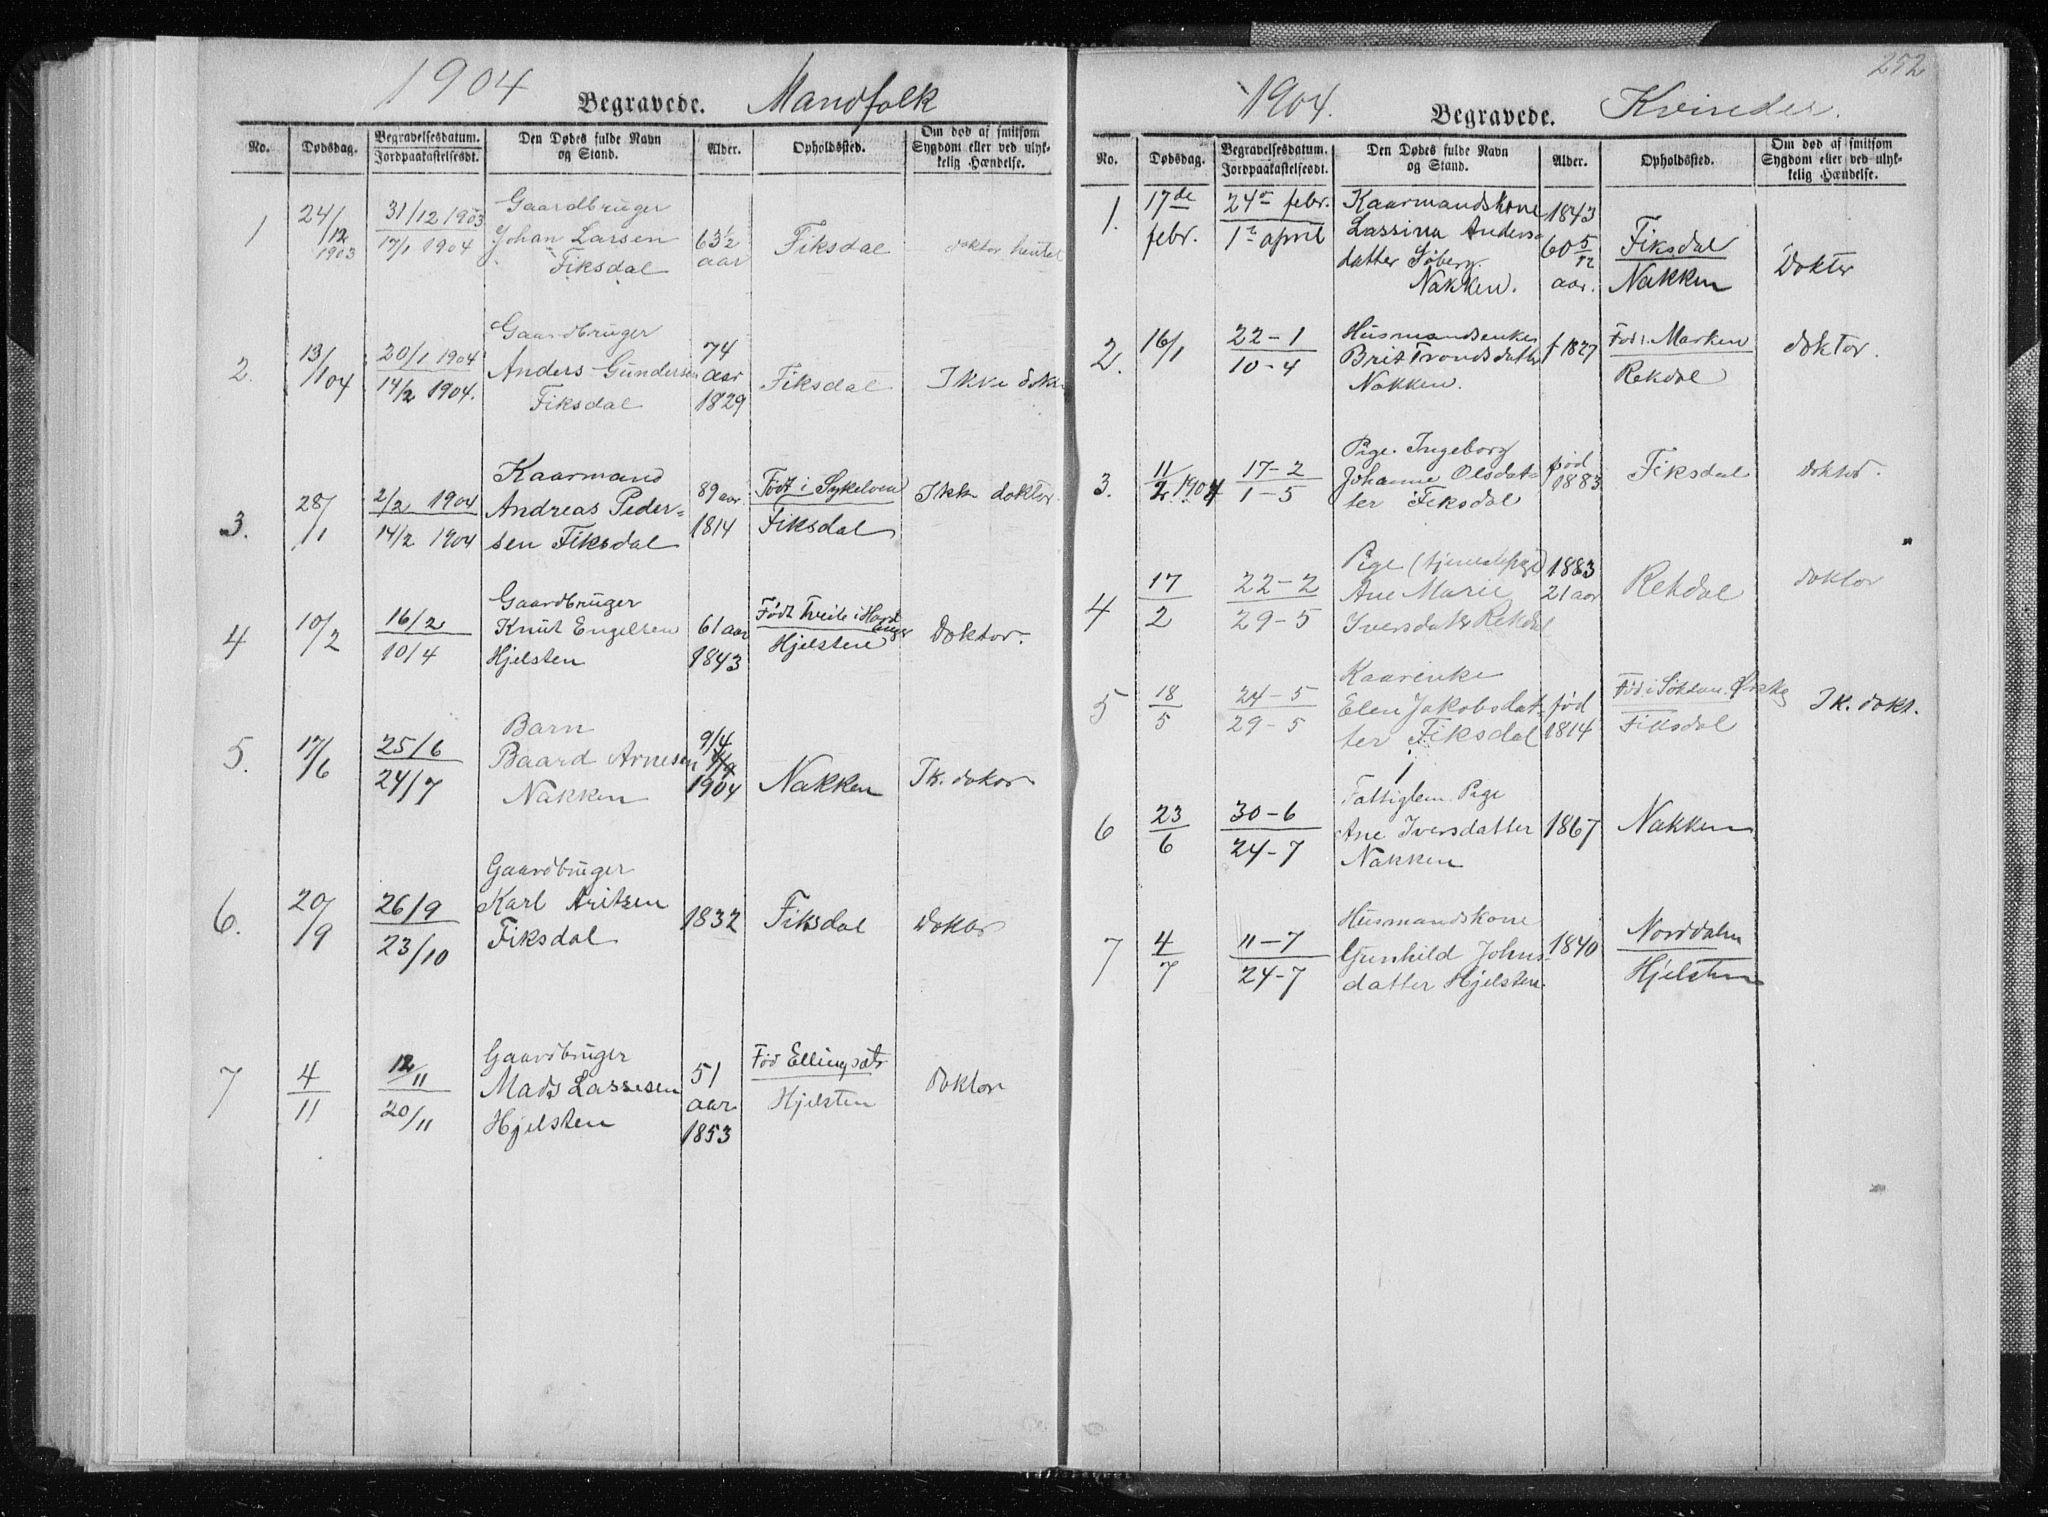 1904
Begravede. Mandfolk
No. Dødsdag. Begravelsesdatum. Jordpaakastelsesdt. Den Dødes fulde Navn og Stand. Alder. Opholdssted. Om død af smitsom Sygdom eller ved ulykkelig Hændelse.
1 24/12 1903 31/12 1903 17/1 1904 Gaardbruger
Johan Larsen
Fiksdal 63½ aar Fiksdal doktor hentet
2. 13/1 04 20/1 1904 14/2 1904. Gaardbruger
Anders Gundersen
Fiksdal 74 aar 1829 Fiksdal Ikke dok.
3. 28/1 2/2 1904 14/2 1904 Kaarmand
Andreas Peder=
sen Fiksdal 89 aar 1814 Født i Sykelven
Fiksdal Ikke doktor.
4 10/2 16/2 10/4 Gaardbruger
Knut Engelsen
Hjelsten 61 aar 1843 Født Tveite i Hardanger
Hjelsten Doktor.
5. 17/6 25/6 24/7 Barn
Baard Arnesen
Nakken 9/4 1904 Nakken Ik. dokor
6. 20/9 26/9 23/10 Gaardbruger
Karl Aritsen
Fiksdal 1832 Fiksdal Doktor
7 4/11 12/11 20/11 Gaardbruger
Mads Lassesen
Hjelsten 51 aar 1853 Fød Ellingsæter
Hjelsten doktor
252
1904.
Begravede. Kvinder.
No. Dødsdag. Begravelsesdatum. Jordpaakastelsesdt. Den Dødes fulde Navn og Stand. Alder. Opholdssted. Om død af smitsom Sygdom eller ved ulykkelig Hændelse.
1. 17de febr. 24de febr. 1ste april Kaarmandskone
Lassina Anders=
datter Søberg
Nakken. 1843 60 5/12 aar. Fiksdal
Nakken Dokter
2. 16/1 22-1 10-4 Husmandsenke
Brit Trondsdatter
Nakken. f 1827 Fød i Marken
Rekdal doktor.
3. 11/2 1904 17-2 1-5 Pige. Ingeborg
Johanne Olsdat=
ter Fiksdal født 1883 Fiksdal doktor.
4 17/2 22-2 29-5 Pige (tjenestepige)
Ane Marie
Iversdatter Rekdal 1883 21 aar Rekdal doktor
5 18/5 24-5 29-5 Kaarenke
Elen Jakobsdat=
ter Fiksdal fød 1814 Fød i
Fiksdal Ik. dokt.
6 23/6 30-6 24-7 Fattiglem Pige
Ane Iversdatter
Nakken 1867 Nakken
7 4/7 11-7 24-7 Husmandskone
Gunhild Johns
datter Hjelsten. 1840 Norddalen
Hjelsten